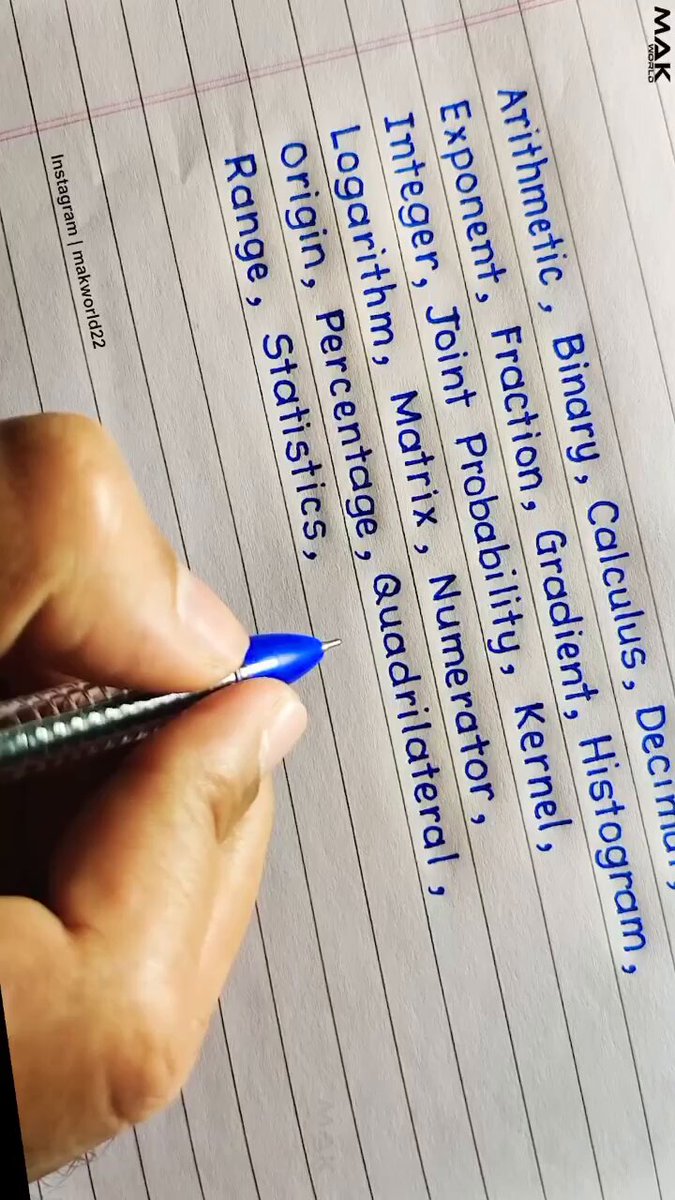 MAK
WORLD
Arithmetic, Binary, Calculus, Decimal,
Exponent, Fraction, Gradient, Histogram,
Integer, Joint Probability, Kernel,
Logarithm, Matrix, Numerator,
Origin, Percentage, Quadrilateral,
Range, Statistics,
Instagram | makworld22
MAK